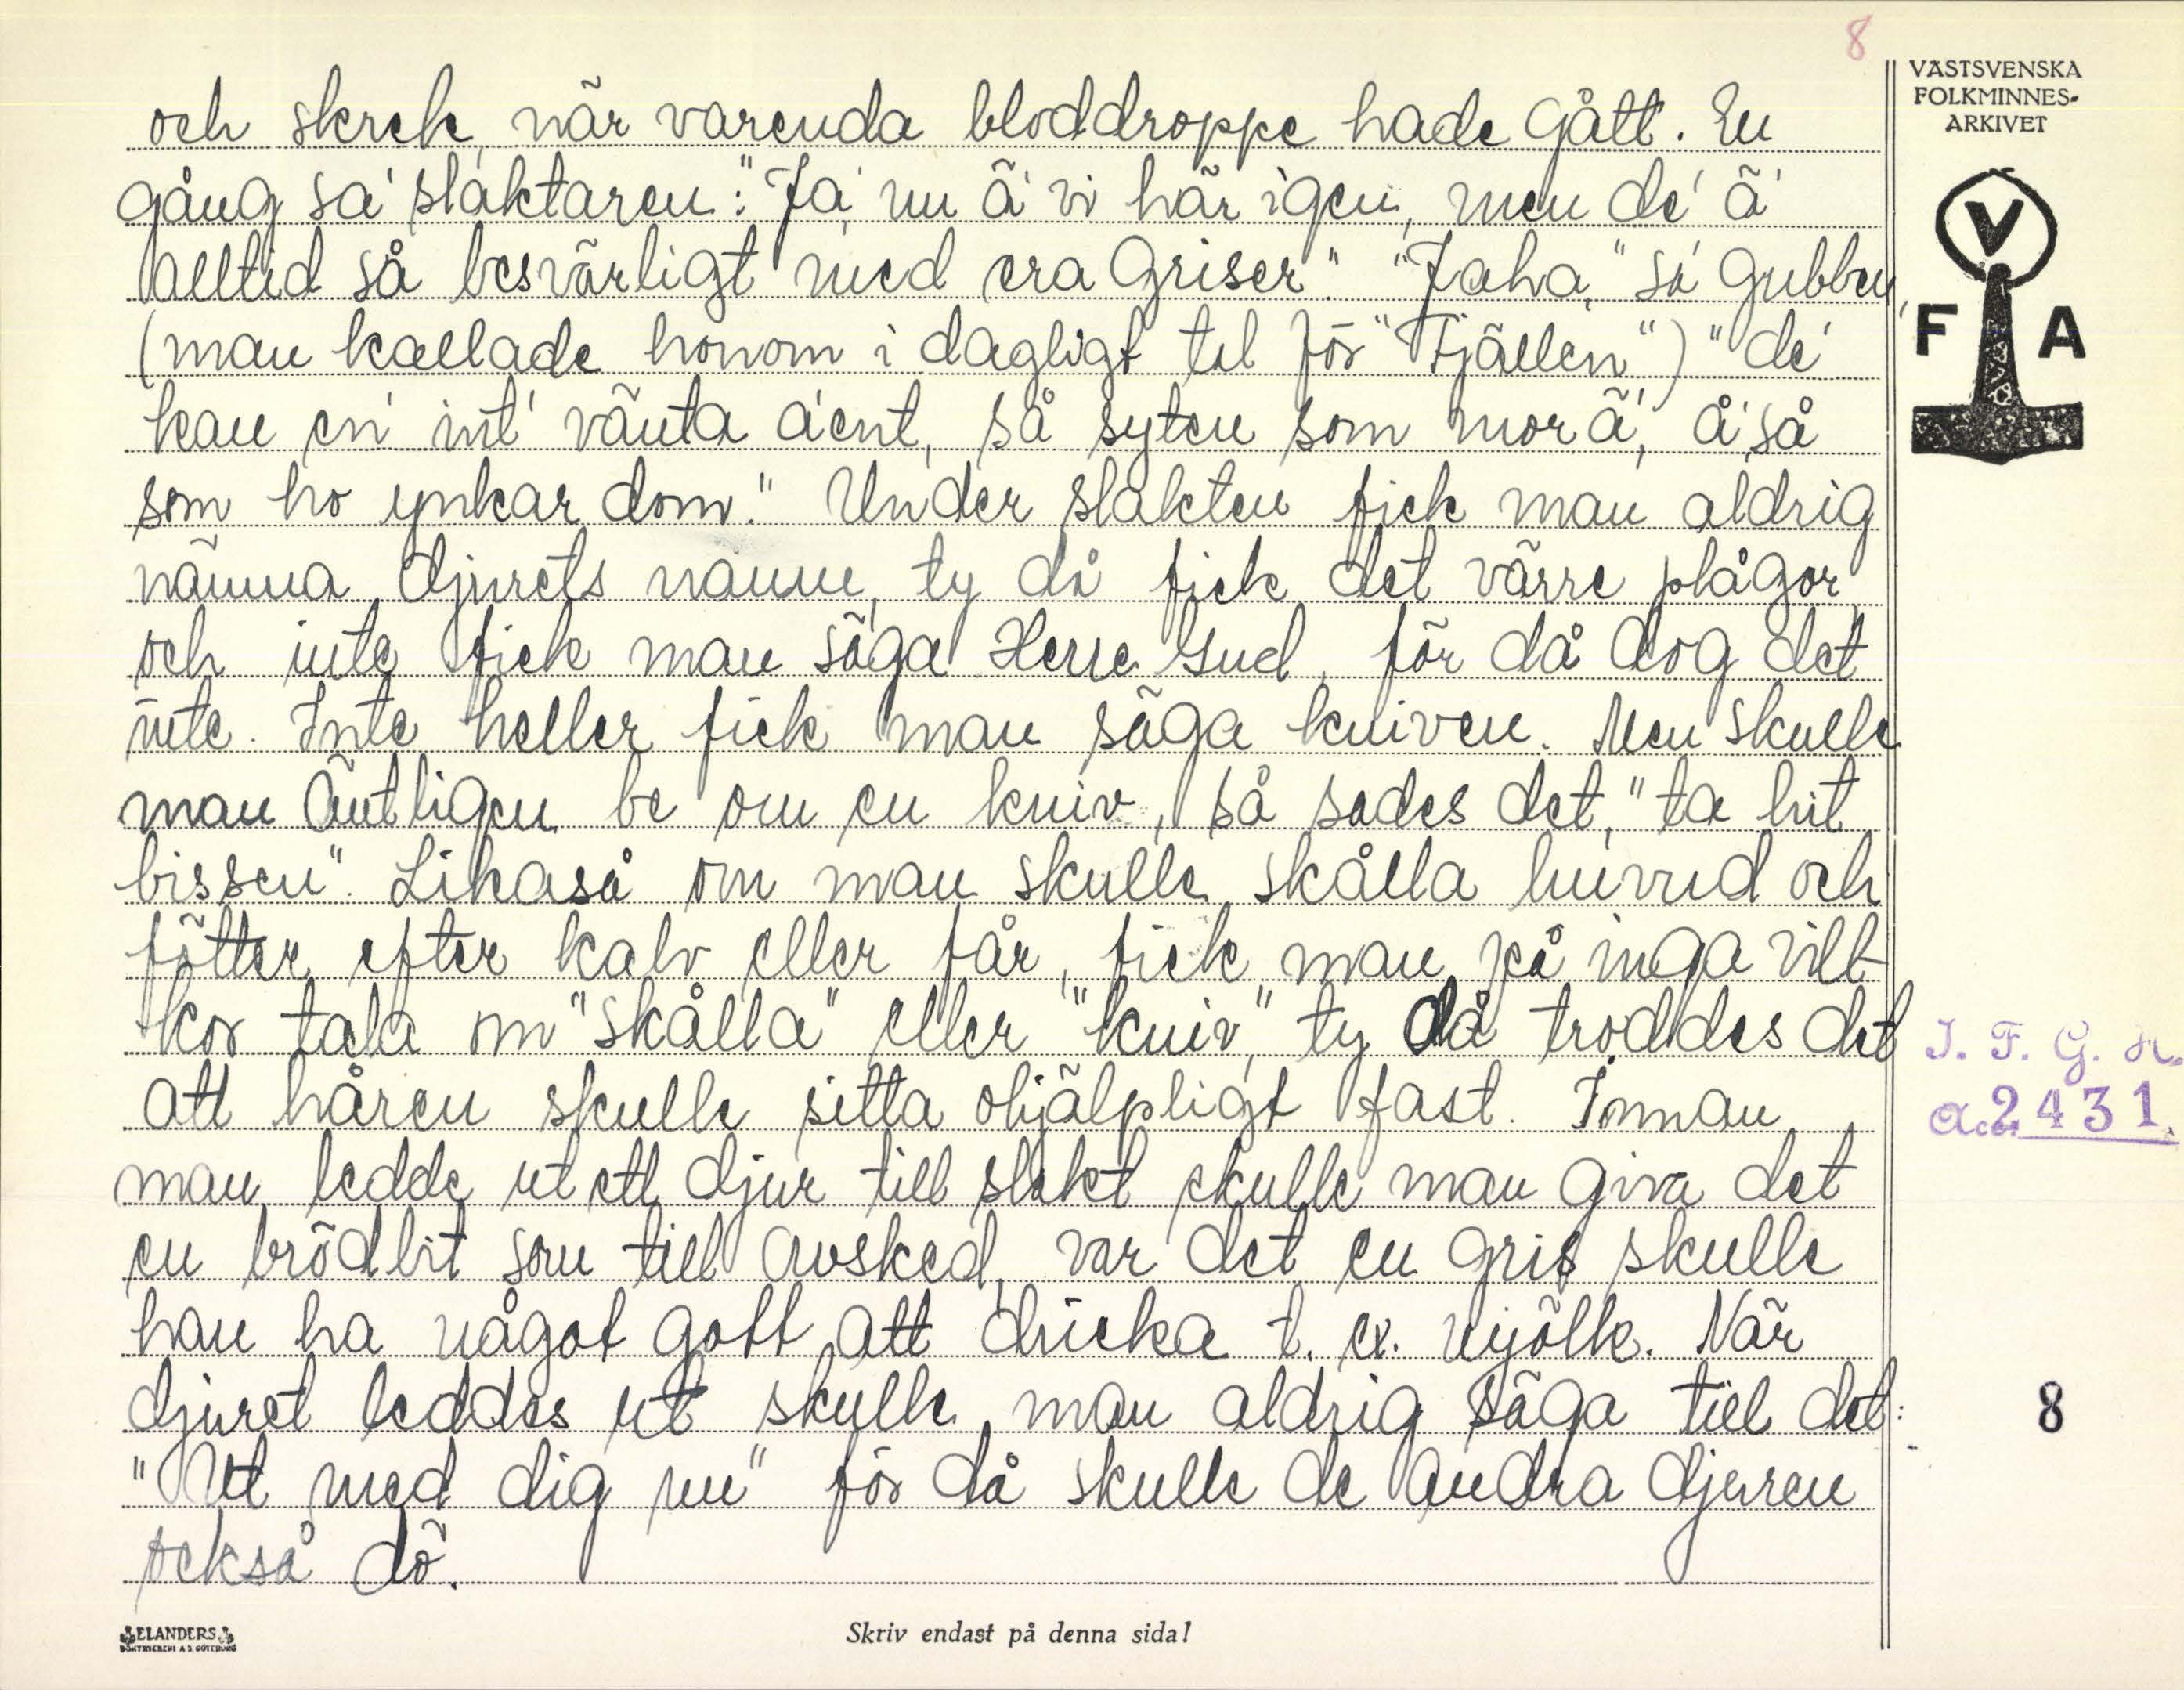 8
VÄSTSVENSKA
FOLKMINNES-
ARKIVET
V
F A
och skrek, när varenda bloddroppe hade gått. En
gång sa' slaktaren: "Ja' nu ä' vi här igen, men de' ä'
alltid så besvärligt med era griser." "Jaha," sa' gubben,
(man kallade honom i dagligt tal för "Fjällen") "de'
kan en' int' vänta a'ent, så syten som mor ä', å' så
som ho ynkar dom." Under slakten fick man aldrig
nämna djurets namn, ty då fick det värre plågor,
och inte fick man säga Herre Gud, för då dog det
inte. Inte heller fick man säga kniven. Men skulle
man äntligen be om en kniv, så sades det, "ta hit
bissen". Likaså om man skulle skålla huvud och
fötter efter kalv eller får, fick man på inga vill-
kor tala om "skålla" eller "kniv," ty då troddes det
att håren skulle sitta ohjälpligt fast. Innan
man ledde ut ett djur till slakt skulle man giva det
en brödbit som till avsked, var det en gris skulle
han ha något gott att dricka t. ex. mjölk. När
djuret leddes ut skulle man aldrig säga till det:
"Ut med dig nu" för då skulle de andra djuren
också dö.
I. F. G. H.
Acc. 2431.
8
ELANDERS
BOKTRYCKERI A.B. GÖTEBORG
Skriv endast på denna sida!